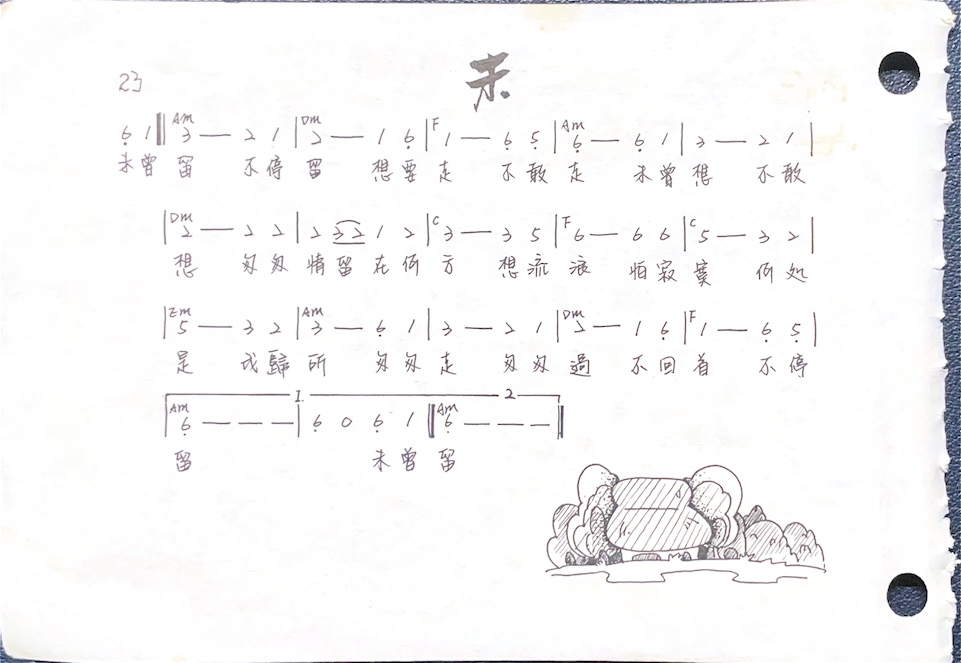 未
23
6̣ 1 ‖ Am 3 — 2 1 | Dm 2 — 1 6̣ | F 1 — 6̣ 5̣ | Am 6̣ — 6̣ 1 | 3 — 2 1 |
未曾 留 不停 留 想要 走 不敢 走 未曾 想 不敢
| Dm 2 — 2 2 | 2 32 1 2 | C 3 — 3 5 | F 6 — 6 6 | C 5 — 3 2 |
想 匆匆 情留在何 方 想流 浪 怕寂 寞 何处
| Em 5 — 3 2 | Am 3 — 6̣ 1 | 3 — 2 1 | Dm 2 — 1 6̣ | F 1 — 6̣ 5̣ |
是 我歸 所 匆匆 走 匆匆 過 不回 首 不停
1. 2.
| Am 6̣ — — — | 6̣ 0 6̣ 1 ‖ Am 6̣ — — — ‖
留 未曾 留